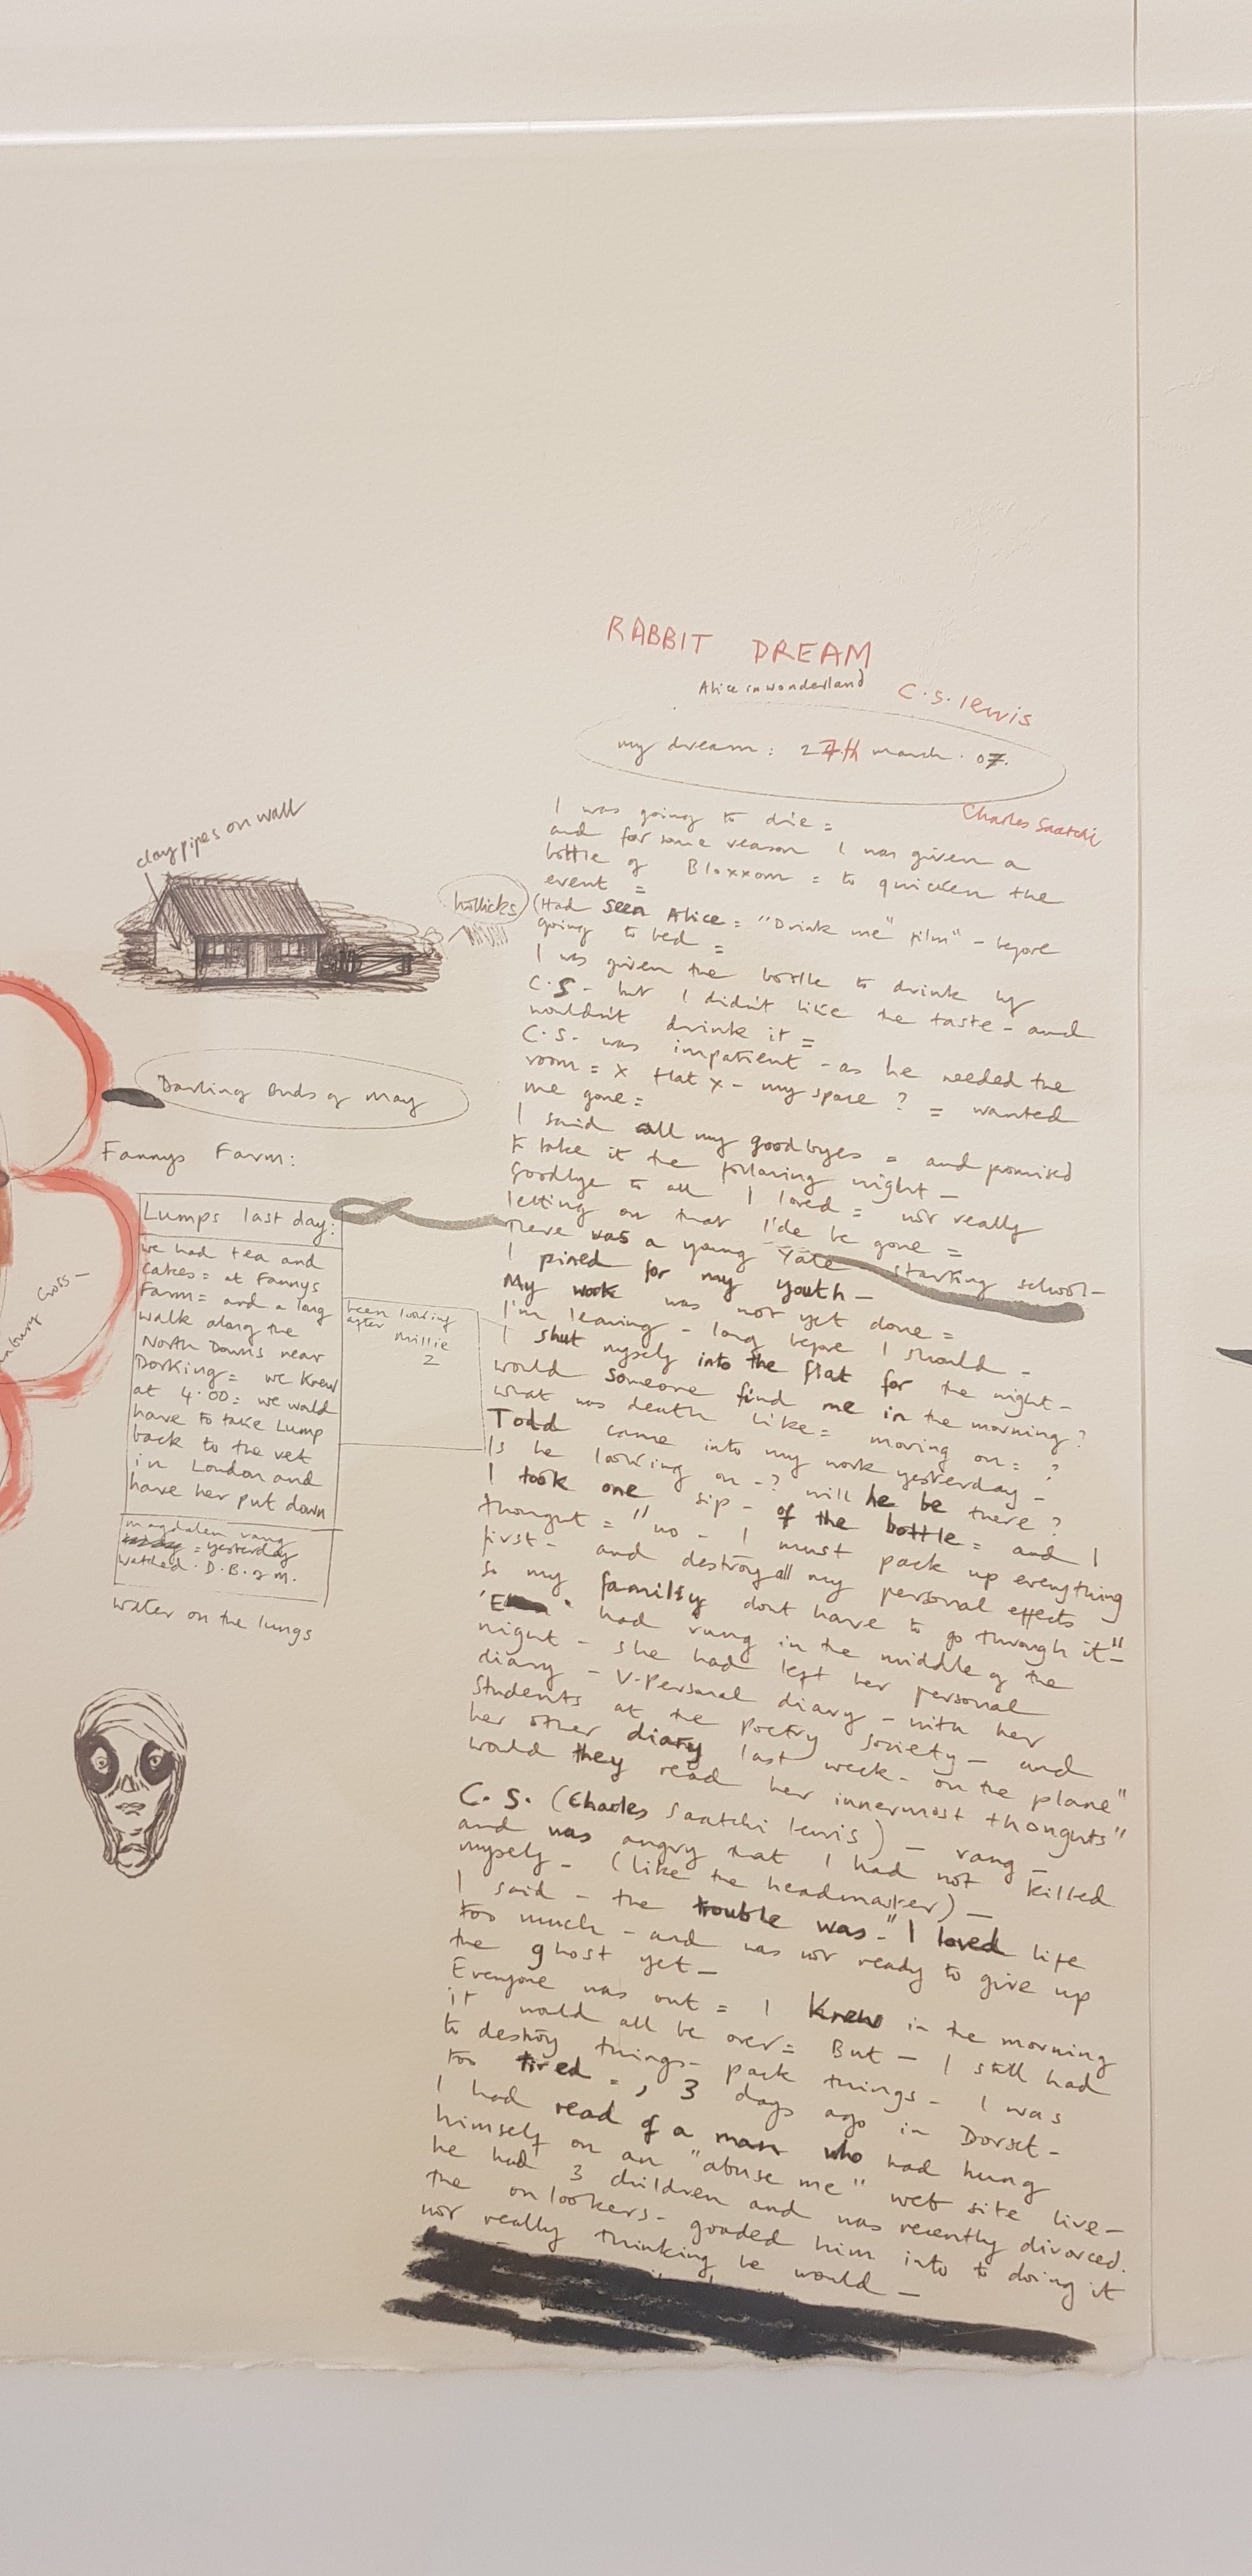 RABBIT DREAM
Alice in wonderland
C.S. lewis
my dream : 27th march . 07.
Charles Saatchi
I was going to die =
and for some reason I was given a
bottle of Bloxxom = to quicken the
event =
(Had seen Alice = "Drink me" film" - before
going to bed =
I was given the bottle to drink by
C.S - but I didn't like the taste - and
wouldn't drink it =
C.S. was impatient - as he needed the
room = x flat x - my space ? = wanted
me gone =
I said all my goodbyes = and promised
to take it the following night -
Goodbye to all I loved = not really
letting on that I'de be gone =
There was a young Tate starting school -
I pined for my youth -
My work was not yet done =
I'm leaving - long before I should -
I shut myself into the flat for the night -
would someone find me in the morning ?
what was death like = moving on = ?
Todd came into my work yesterday -
Is he looking on - ? will he be there ?
I took one sip - of the bottle = and I
thought = "no - I must pack up everything
first - and destroy all my personal effects
so my familiy dont have to go through it" -
'E had rung in the middle of the
night - she had left her personal
diary - V. Personal diary - with her
students at the poetry society - and
her other diary last week - on the plane"
would they read her innermost thoughts"
C. S. (Charles Saatchi lewis) - rang -
and was angry that I had not killed
myself - (like the headmaster) -
I said - the trouble was - " I loved life
too much - and was not ready to give up
the ghost yet -
Everyone was out = I knew in the morning
it would all be over = But - I still had
to destroy things - pack things - I was
too tired = , 3 days ago in Dorset -
I had read of a man who had hung
himself on an "abuse me" web site live -
he had 3 children and was recently divorced.
the onlookers - goaded him into to doing it
not really thinking he would -
clay pipes on wall
hollicks
Darling Buds of May
Fannys Farm :
Lumps last day :
we had tea and
cakes = at Fannys
Farm = and a long
walk along the
North Downs near
Dorking = we knew
at 4.00 = we wald
have to take Lump
back to the vet
in London and
have her put down
been looking
after Millie
2
magdalen rang
= yesterday
watched . D.B. of M.
water on the lungs
Cross -